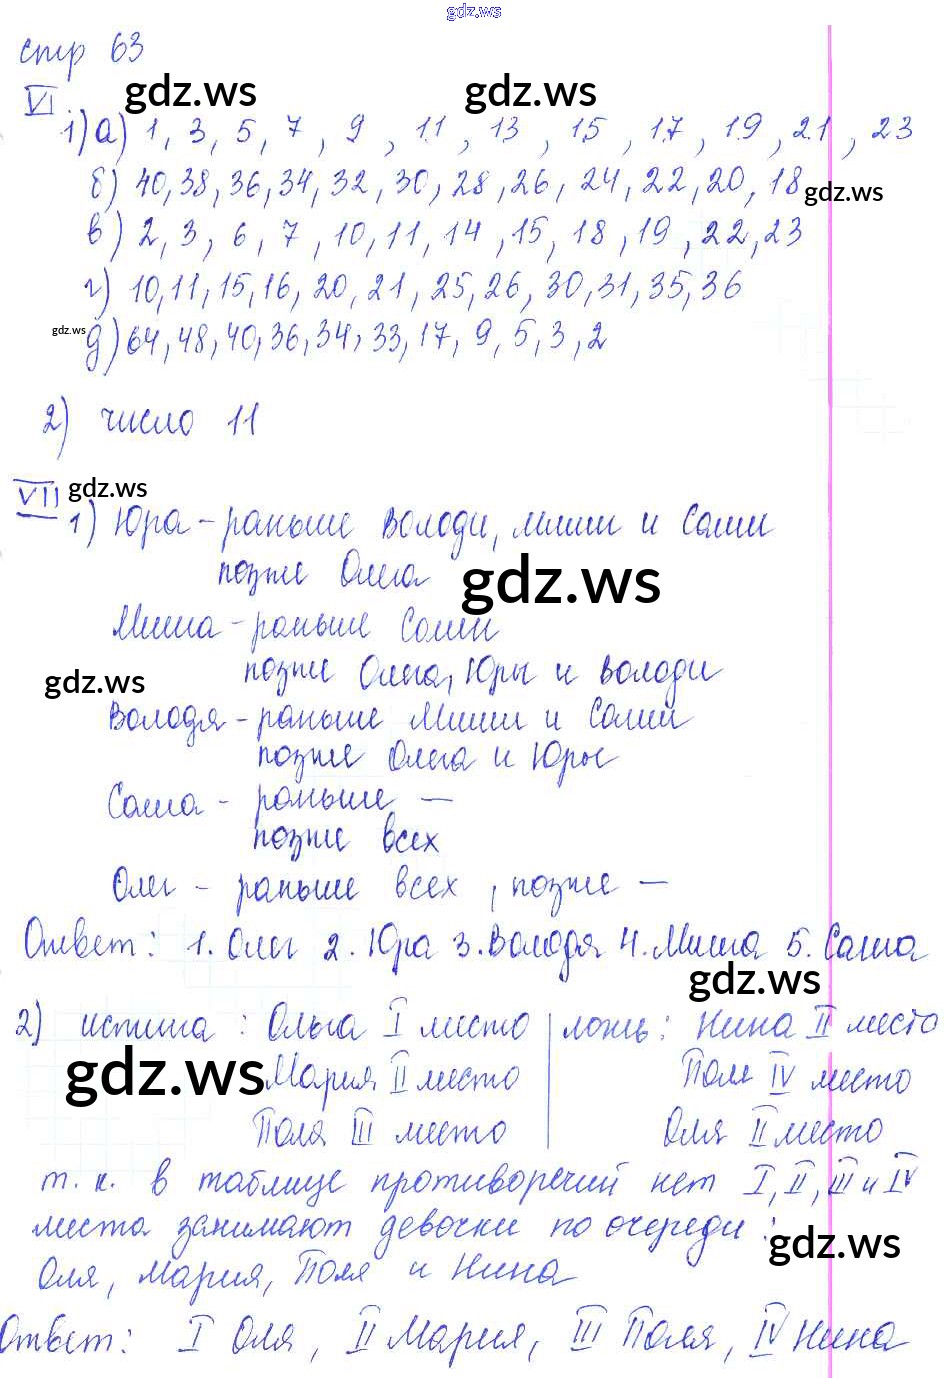 gdz.ws
стр 63
gdz.ws gdz.ws
VI
1) а) 1, 3, 5, 7, 9, 11, 13, 15, 17, 19, 21, 23
б) 40, 38, 36, 34, 32, 30, 28, 26, 24, 22, 20, 18
gdz.ws
в) 2, 3, 6, 7, 10, 11, 14, 15, 18, 19, 22, 23
г) 10, 11, 15, 16, 20, 21, 25, 26, 30, 31, 35, 36
gdz.ws
д) 64, 48, 40, 36, 34, 33, 17, 9, 5, 3, 2
2) число 11
VII gdz.ws
1) Юра - раньше Володи, Миши и Саши
позже Олега
gdz.ws
Миша - раньше Саши
позже Олега, Юры и Володи
gdz.ws
Володя - раньше Миши и Саши
позже Олега и Юры
Саша - раньше —
позже всех
Олег - раньше всех, позже —
Ответ: 1. Олег 2. Юра 3. Володя 4. Миша 5. Саша
gdz.ws
2) истина: Ольга I место | ложь: Нина II место
gdz.ws
Мария II место Поля IV место
Поля III место Оля II место
т. к. в таблице противоречий нет I, II, III и IV
места занимают девочки по очереди:
gdz.ws
Оля, Мария, Поля и Нина
Ответ: I Оля, II Мария, III Поля, IV Нина